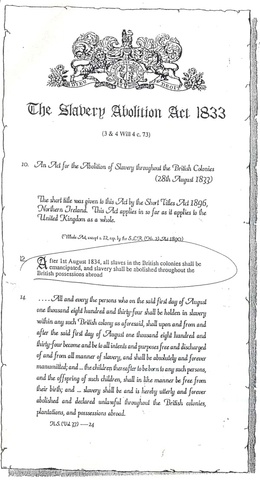 The Slavery Abolition Act 1833
(3 & 4 Will 4 c. 73)
10. An Act for the Abolition of Slavery throughout the British Colonies
(28th August 1833)
The short title was given to this Act by the Short Titles Act 1896,
Northern Ireland. This Act applies in so far as it applies to the
United Kingdom as a whole.
(Whole Act, except s. 12, rep. by the S.L.R. Act
12. After 1st August 1834, all slaves in the British colonies shall be
emancipated, and slavery shall be abolished throughout the
British possessions abroad
. . . . . All and every the persons who on the said first day of August
one thousand eight hundred and thirty-four shall be holden in slavery
within any such British colony as aforesaid, shall upon and from and
after the said first day of August one thousand eight hundred and
thirty-four become and be to all intents and purposes free and discharged
of and from all manner of slavery, and shall be absolutely and forever
manumitted; and ... the children thereafter to be born to any such persons,
and the offspring of such children, shall in like manner be free from
their birth; and ... slavery shall be and is hereby utterly and forever
abolished and declared unlawful throughout the British colonies,
plantations, and possessions abroad.